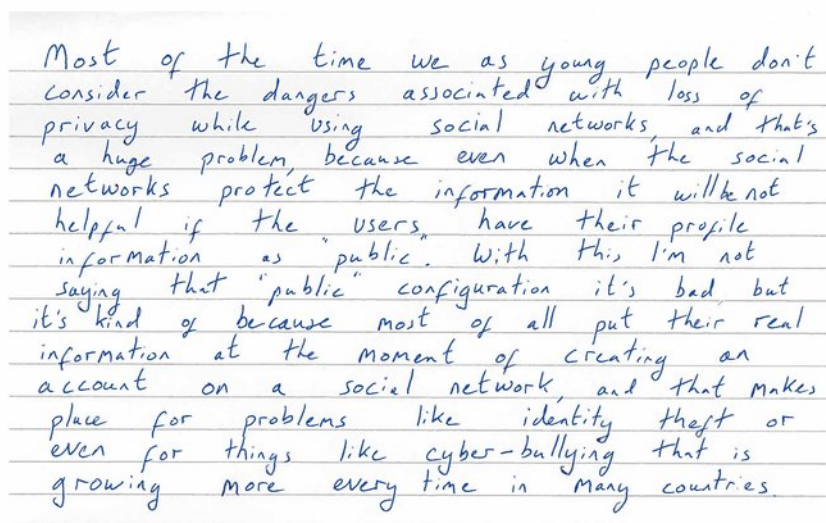 Most of the time we as young people don't
consider the dangers associated with loss of
privacy while using social networks, and that's
a huge problem, because even when the social
networks protect the information it will be not
helpful if the users have their profile
information as "public". With this, I'm not
saying that "public" configuration it's bad, but
it's kind of because most of all put their real
information at the moment of creating an
account on a social network, and that makes
place for problems like identity theft or
even for things like cyber-bullying that is
growing more every time in many countries.